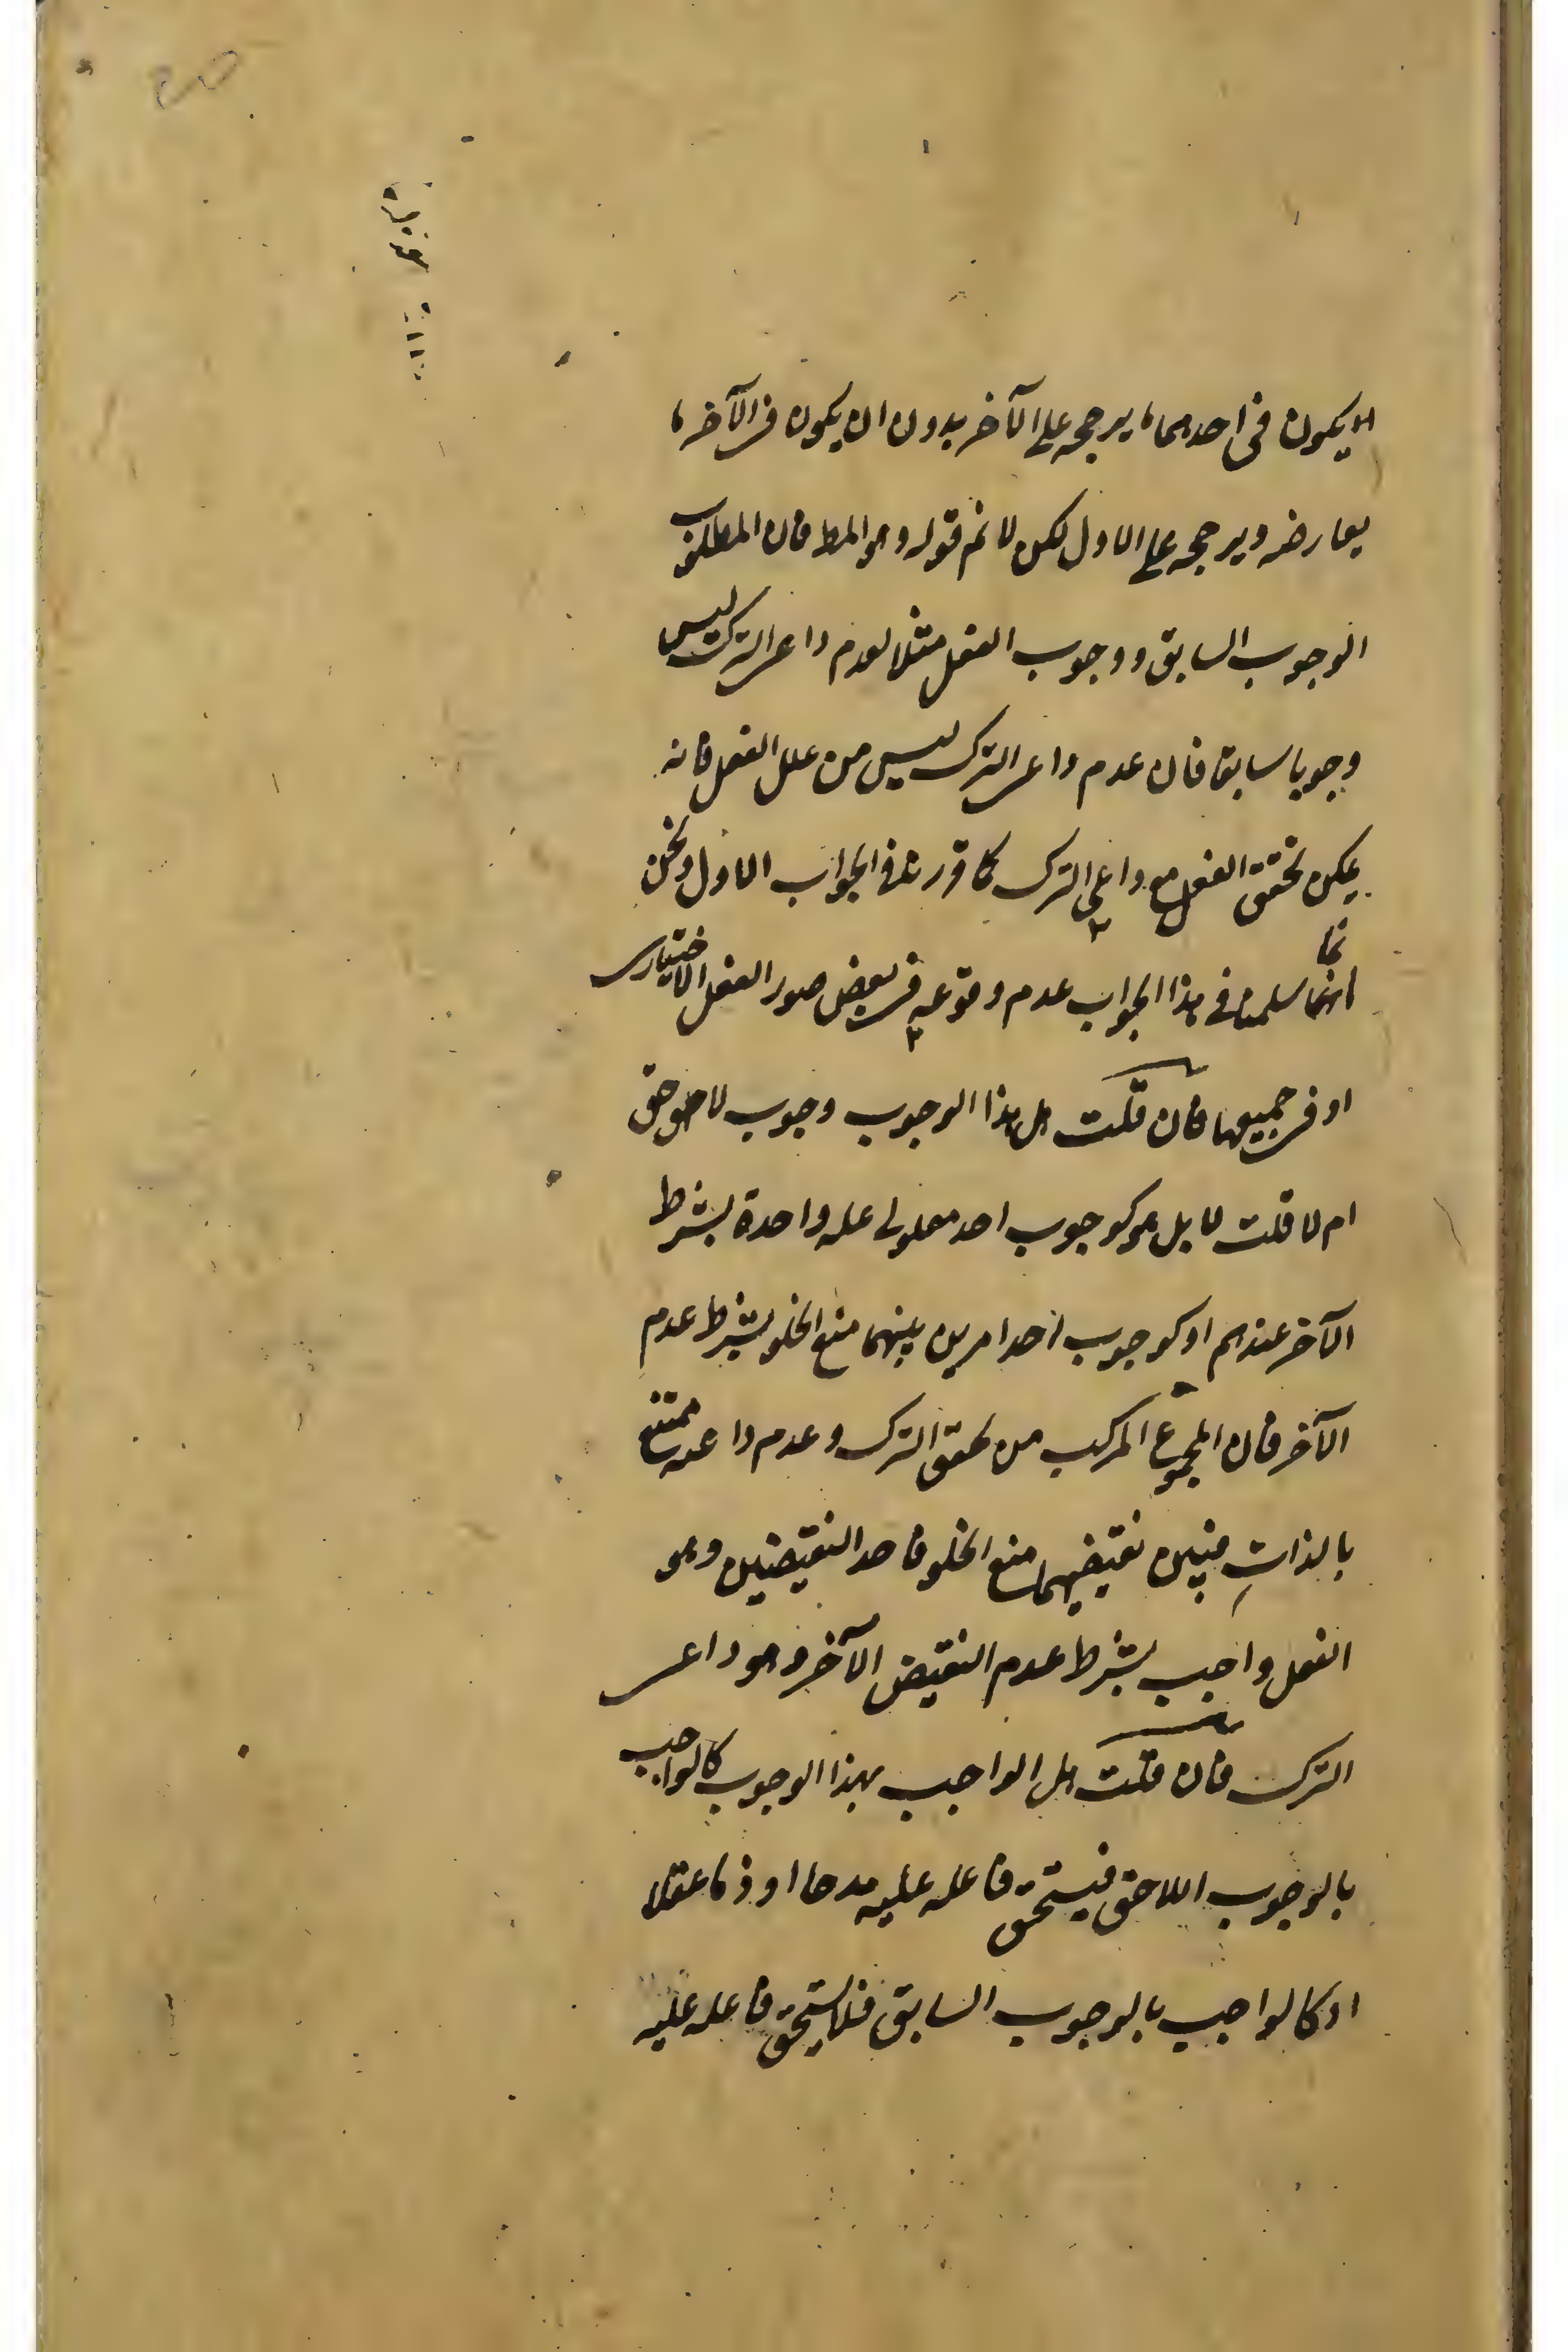 لا يكون فى احدهما ما يرجحه على الآخر بدون ان يكون فى الآخر ما
يعارضه ويرجحه على الاول لكن لا نم قوله وهو المط فان المطلوب
الوجوب السابق ووجوب الفعل مثلا لعدم داعى الترك ليس
وجوبا سابقا فان عدم داعى الترك ليس من علل الفعل فانه
يمكن تحقق الفعل مع داعى الترك كما قررنا فى الجواب الاول ونحن
انما سلمنا فى هذا الجواب عدم وقوعه فى بعض صور الفعل الاختيارى
او فى جميعها فان قلت هل هذا الوجوب وجوب لاحق
ام لا قلت لا بل هو كوجوب احد معلولى علة واحدة بشرط
الآخر عندهم او كوجوب احد امرين بينهما منع الخلو بشرط عدم
الآخر فان المجموع المركب من تحقق الترك وعدم داعيه ممتنع
بالذات فبين نقيضيهما منع الخلو فاحد النقيضين وهو
الفعل واجب بشرط عدم النقيض الآخر وهو داعى
الترك فان قلت هل الواجب بهذا الوجوب كالواجب
بالوجوب اللاحق فيستحق فاعله عليه مدحا او ذما عقلا
او كالواجب بالوجوب السابق فلا يستحق فاعله عليه